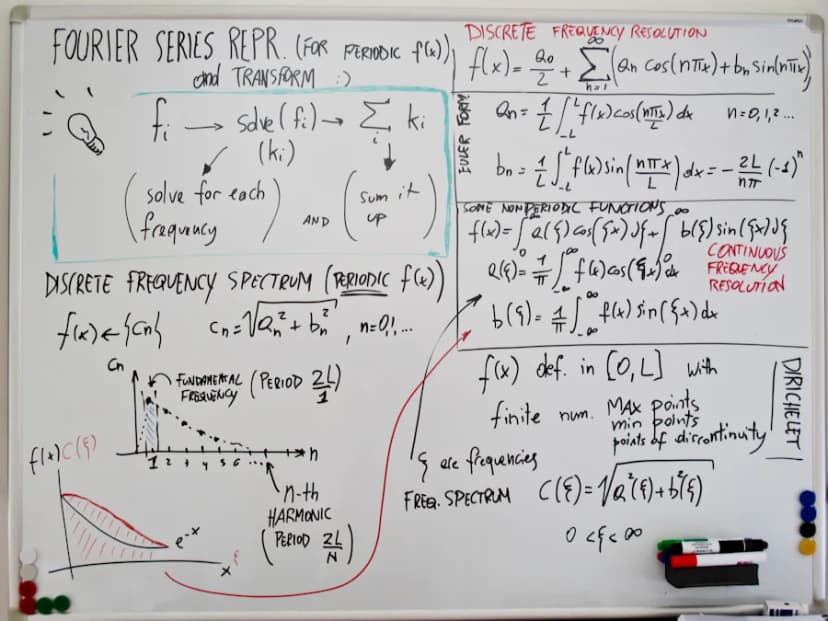 FOURIER SERIES REPR. (FOR PERIODIC f(x))
and TRANSFORM :)
fi → solve(fi) → ∑ ki
i
(ki)
(solve for each
frequency)
AND
(sum it
up)
DISCRETE FREQUENCY SPECTRUM (PERIODIC f(x))
f(x) ← {Cn} Cn = √(an² + bn²), n=0,1,...
Cn
FUNDAMENTAL (PERIOD 2L/1)
FREQUENCY
1 2 3 4 5 6 ... n
n-th
HARMONIC
(PERIOD 2L/N)
f(x) C(ξ)
e^-x
x ξ
DISCRETE FREQUENCY RESOLUTION
f(x) = a0/2 + ∑_{n=1}^{∞} (an cos(nπx) + bn sin(nπx))
EULER FORM.
an = 1/L ∫_{-L}^{L} f(x) cos(nπx/L) dx n=0,1,2...
bn = 1/L ∫_{-L}^{L} f(x) sin(nπx/L) dx = - 2L/nπ (-1)^n
SOME NONPERIODIC FUNCTIONS
f(x) = ∫_0^∞ a(ξ) cos(ξx) dξ + ∫_0^∞ b(ξ) sin(ξx) dξ
a(ξ) = 1/π ∫_{-∞}^{∞} f(x) cos(ξx) dx
CONTINUOUS
FREQUENCY
RESOLUTION
b(ξ) = 1/π ∫_{-∞}^{∞} f(x) sin(ξx) dx
f(x) def. in [0,L] with
finite num. MAX points
min points
points of discontinuity
DIRICHELET
ξ are frequencies
FREQ. SPECTRUM C(ξ) = √(a²(ξ) + b²(ξ))
0 < ξ < ∞